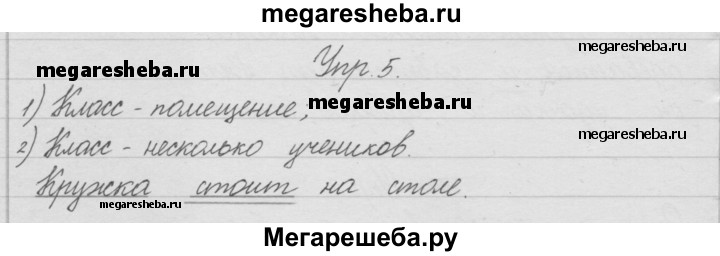 megaresheba.ru
Упр. 5.
megaresheba.ru
megaresheba.ru
1) Класс - помещение;
megaresheba.ru
2) Класс - несколько учеников.
megaresheba.ru
Кружка стоит на столе.
megaresheba.ru
megaresheba.ru
Мегарешеба.ру